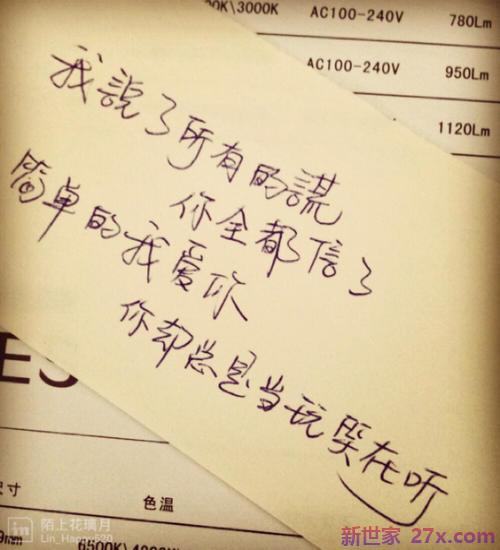 0K\3000K AC100-240V 780Lm
AC100-240V 950Lm
1120Lm
我說了所有的謊
你全都信了
简单的我爱你
你却总是当玩笑在听
ES
寸 色温
陌上花璃月
Lin_Happy520
新世家 27x.com